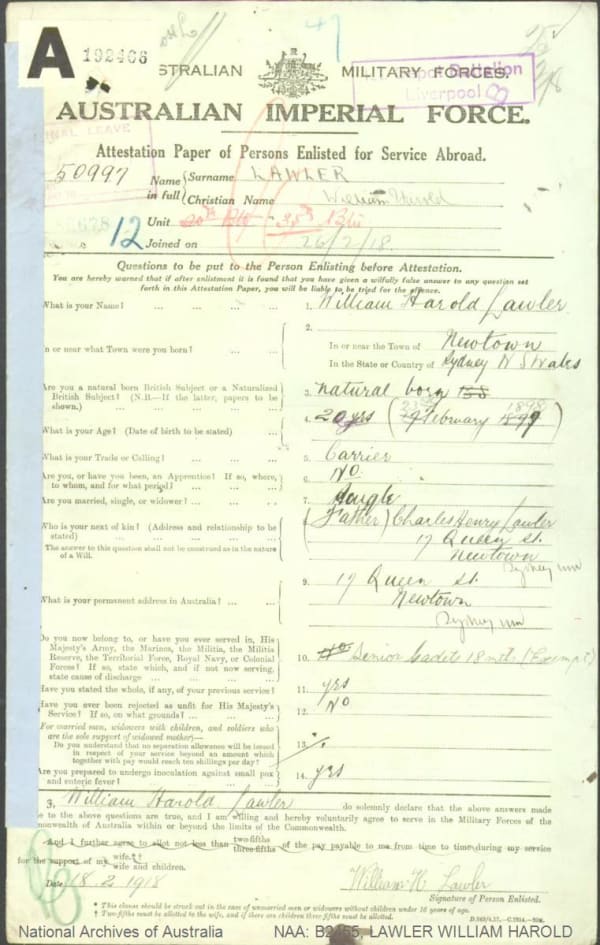 A 192466
AUSTRALIAN MILITARY FORCES.
Depot Battalion
Liverpool
AUSTRALIAN IMPERIAL FORCE.
FINAL LEAVE
Attestation Paper of Persons Enlisted for Service Abroad.
50997 Name in full { Surname LAWLER
Christian Name William Harold
Unit 20th 35th Btn
12 Joined on 26/2/18.
Questions to be put to the Person Enlisting before Attestation.
You are hereby warned that if after enlistment it is found that you have given a wilfully false answer to any question set
forth in this Attestation Paper, you will be liable to be tried for the offence.
What is your Name? ... ... ... ... 1. William Harold Lawler
2.
In or near what Town were you born? ... ... In or near the Town of Newtown
In the State or Country of Sydney N S Wales
Are you a natural born British Subject or a Naturalized
British Subject? (N.B.—If the latter, papers to be
shown.) ... ... ... ... 3. natural born
What is your Age? (Date of birth to be stated) ... 4. 20 yrs ( February 1899 1898
What is your Trade or Calling? ... ... ... 5. Carrier
Are you, or have you been, an Apprentice? If so, where,
to whom, and for what period? ... ... ... 6. No
Are you married, single, or widower? ... ... 7. Single
Who is your next of kin? (Address and relationship to be
stated) ... ... ... ... (Father) Charles Henry Lawler
The answer to this question shall not be construed as in the nature
of a Will. 17 Queen St.
Newtown
Sydney
What is your permanent address in Australia? ... ... 9. 17 Queen St.
Newtown
Sydney
Do you now belong to, or have you ever served in, His
Majesty's Army, the Marines, the Militia, the Militia
Reserve, the Territorial Force, Royal Navy, or Colonial
Forces? If so, state which, and if not now serving,
state cause of discharge ... ... ... 10. No Senior Cadets 18 mths (Exempt)
Have you stated the whole, if any, of your previous service? 11. yes
Have you ever been rejected as unfit for His Majesty's
Service? If so, on what grounds? ... ... 12. No
For married men, widowers with children, and soldiers who
are the sole support of widowed mother—
Do you understand that no separation allowance will be issued
in respect of your service beyond an amount which
together with pay would reach ten shillings per day? 13.
Are you prepared to undergo inoculation against small pox
and enteric fever? ... ... ... ... 14. yes
I, William Harold Lawler do solemnly declare that the above answers made
me to the above questions are true, and I am willing and hereby voluntarily agree to serve in the Military Forces of the
Commonwealth of Australia within or beyond the limits of the Commonwealth.
*And I further agree to allot not less than two-fifths three-fifths of the pay payable to me from time to time during my service
for the support of my wife.†† wife and children.
Date 18.2.1918 William H. Lawler
Signature of Person Enlisted.
* This clause should be struck out in the case of unmarried men or widowers without children under 16 years of age.
† Two-fifths must be allotted to the wife, and if there are children three-fifths must be allotted.
National Archives of Australia NAA: B2455, LAWLER WILLIAM HAROLD